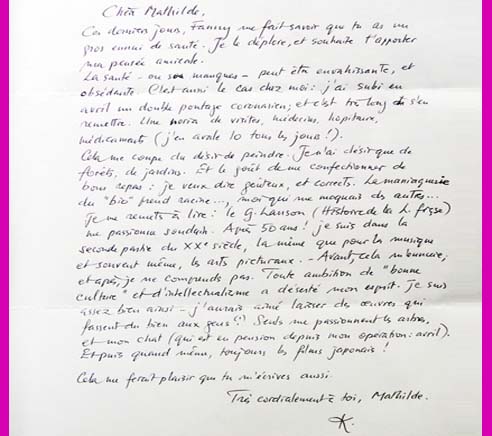 Chère Mathilde,
Ces derniers jours, Fanny me fait savoir que tu as un
gros ennui de santé. Je le déplore, et souhaite t'apporter
ma pensée amicale.
La santé - ou son manque - peut être envahissante, et
obsédante. C'est aussi le cas chez moi : j'ai subi en
avril un double pontage coronarien ; et c'est très long de s'en
remettre. Une noria de visites, médecins, hôpitaux,
médicaments (j'en avale 10 tous les jours !).
Cela me coupe du désir de peindre. Je n'ai désir que de
forêts, de jardins. Et le goût de me confectionner de
bons repas : je veux dire goûteux, et corrects. La maniaquerie
du "bio" prend racine..., moi qui me moquais des autres...
Je me remets à lire : le G. Lanson (Histoire de la L. frçse)
me passionne soudain. Après 50 ans ! je suis dans la
seconde partie du XXe siècle, la même que pour la musique
et souvent même, les arts picturaux. - Avant cela m'ennuie ;
et après, je ne comprends pas. Toute ambition de "bonne
culture" et d'intellectualisme a déserté mon esprit. Je suis
assez bien ainsi - j'aurais aimé laisser des œuvres qui
fassent du bien aux gens (!) Seuls me passionnent les arbres,
et mon chat (qui est en pension depuis mon opération : avril).
Et puis quand même, toujours les films japonais !
Cela me ferait plaisir que tu m'écrives aussi.
Très cordialement à toi, Mathilde.
K